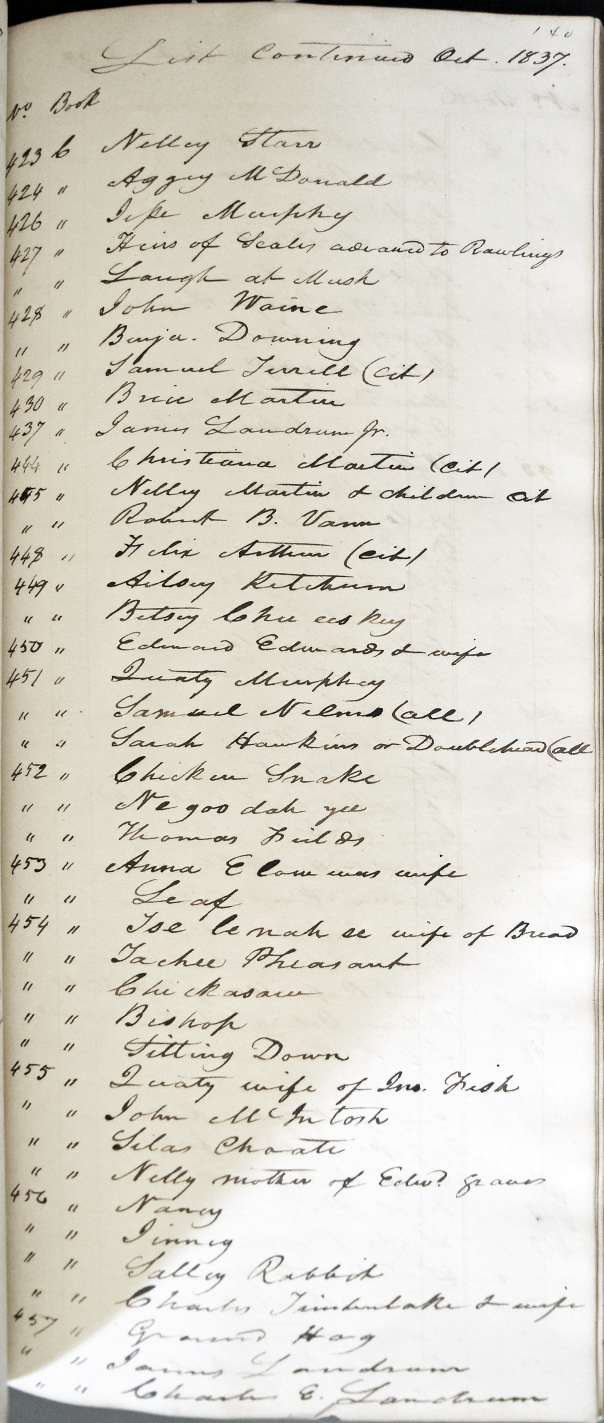 140
List Continued Oct. 1837.
No. Book
423 C Nelley Starr
424 " Aggy McDonald
426 " Jesse Murphy
427 " Heirs of Scales advanced to Rawlings
" " Laugh at Mush
428 " John Waine
" " Benja. Downing
429 " Samuel Terrill (cit)
430 " Brice Martin
437 " James Landrum Jr.
444 " Christiana Martin (cit)
445 " Nelley Martin & children cit
" " Robert B. Vann
448 " Felix Arthur (cit)
449 " Ailsey Ketchum
" " Betsey Chu ees key
450 " Edward Edwards & wife
451 " Quaty Murphey
" " Samuel Nelms (all)
" " Sarah Hawkins or Doublehead (all
452 " Chicken Snake
" " Ne goo dah yee
" " Thomas Fields
453 " Anna E low was wife
" " Leaf
454 " Tse le nah ee wife of Bread
" " Tachee Pheasant
" " Chickasaw
" " Bishop
" " Sitting Down
455 " Quaty wife of Jno. Fish
" " John McIntosh
" " Silas Choate
" " Nelly mother of Edwd. graves
456 " Nancy
" " Jinney
" " Salley Rabbit
" " Charles Timberlake & wife
457 " Ground Hog
" " James Landrum
" " Charles E. Landrum